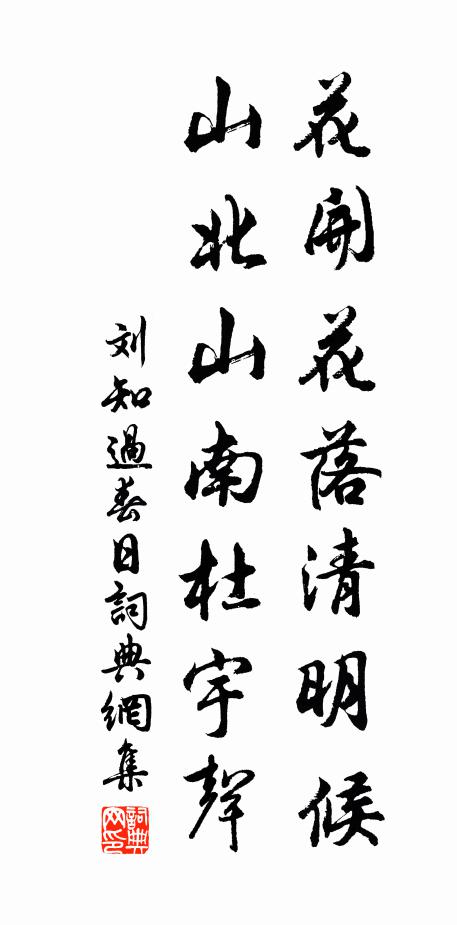 花開花落清明候
山北山南杜宇聲
刘知過春日詞典網集
詞典网印